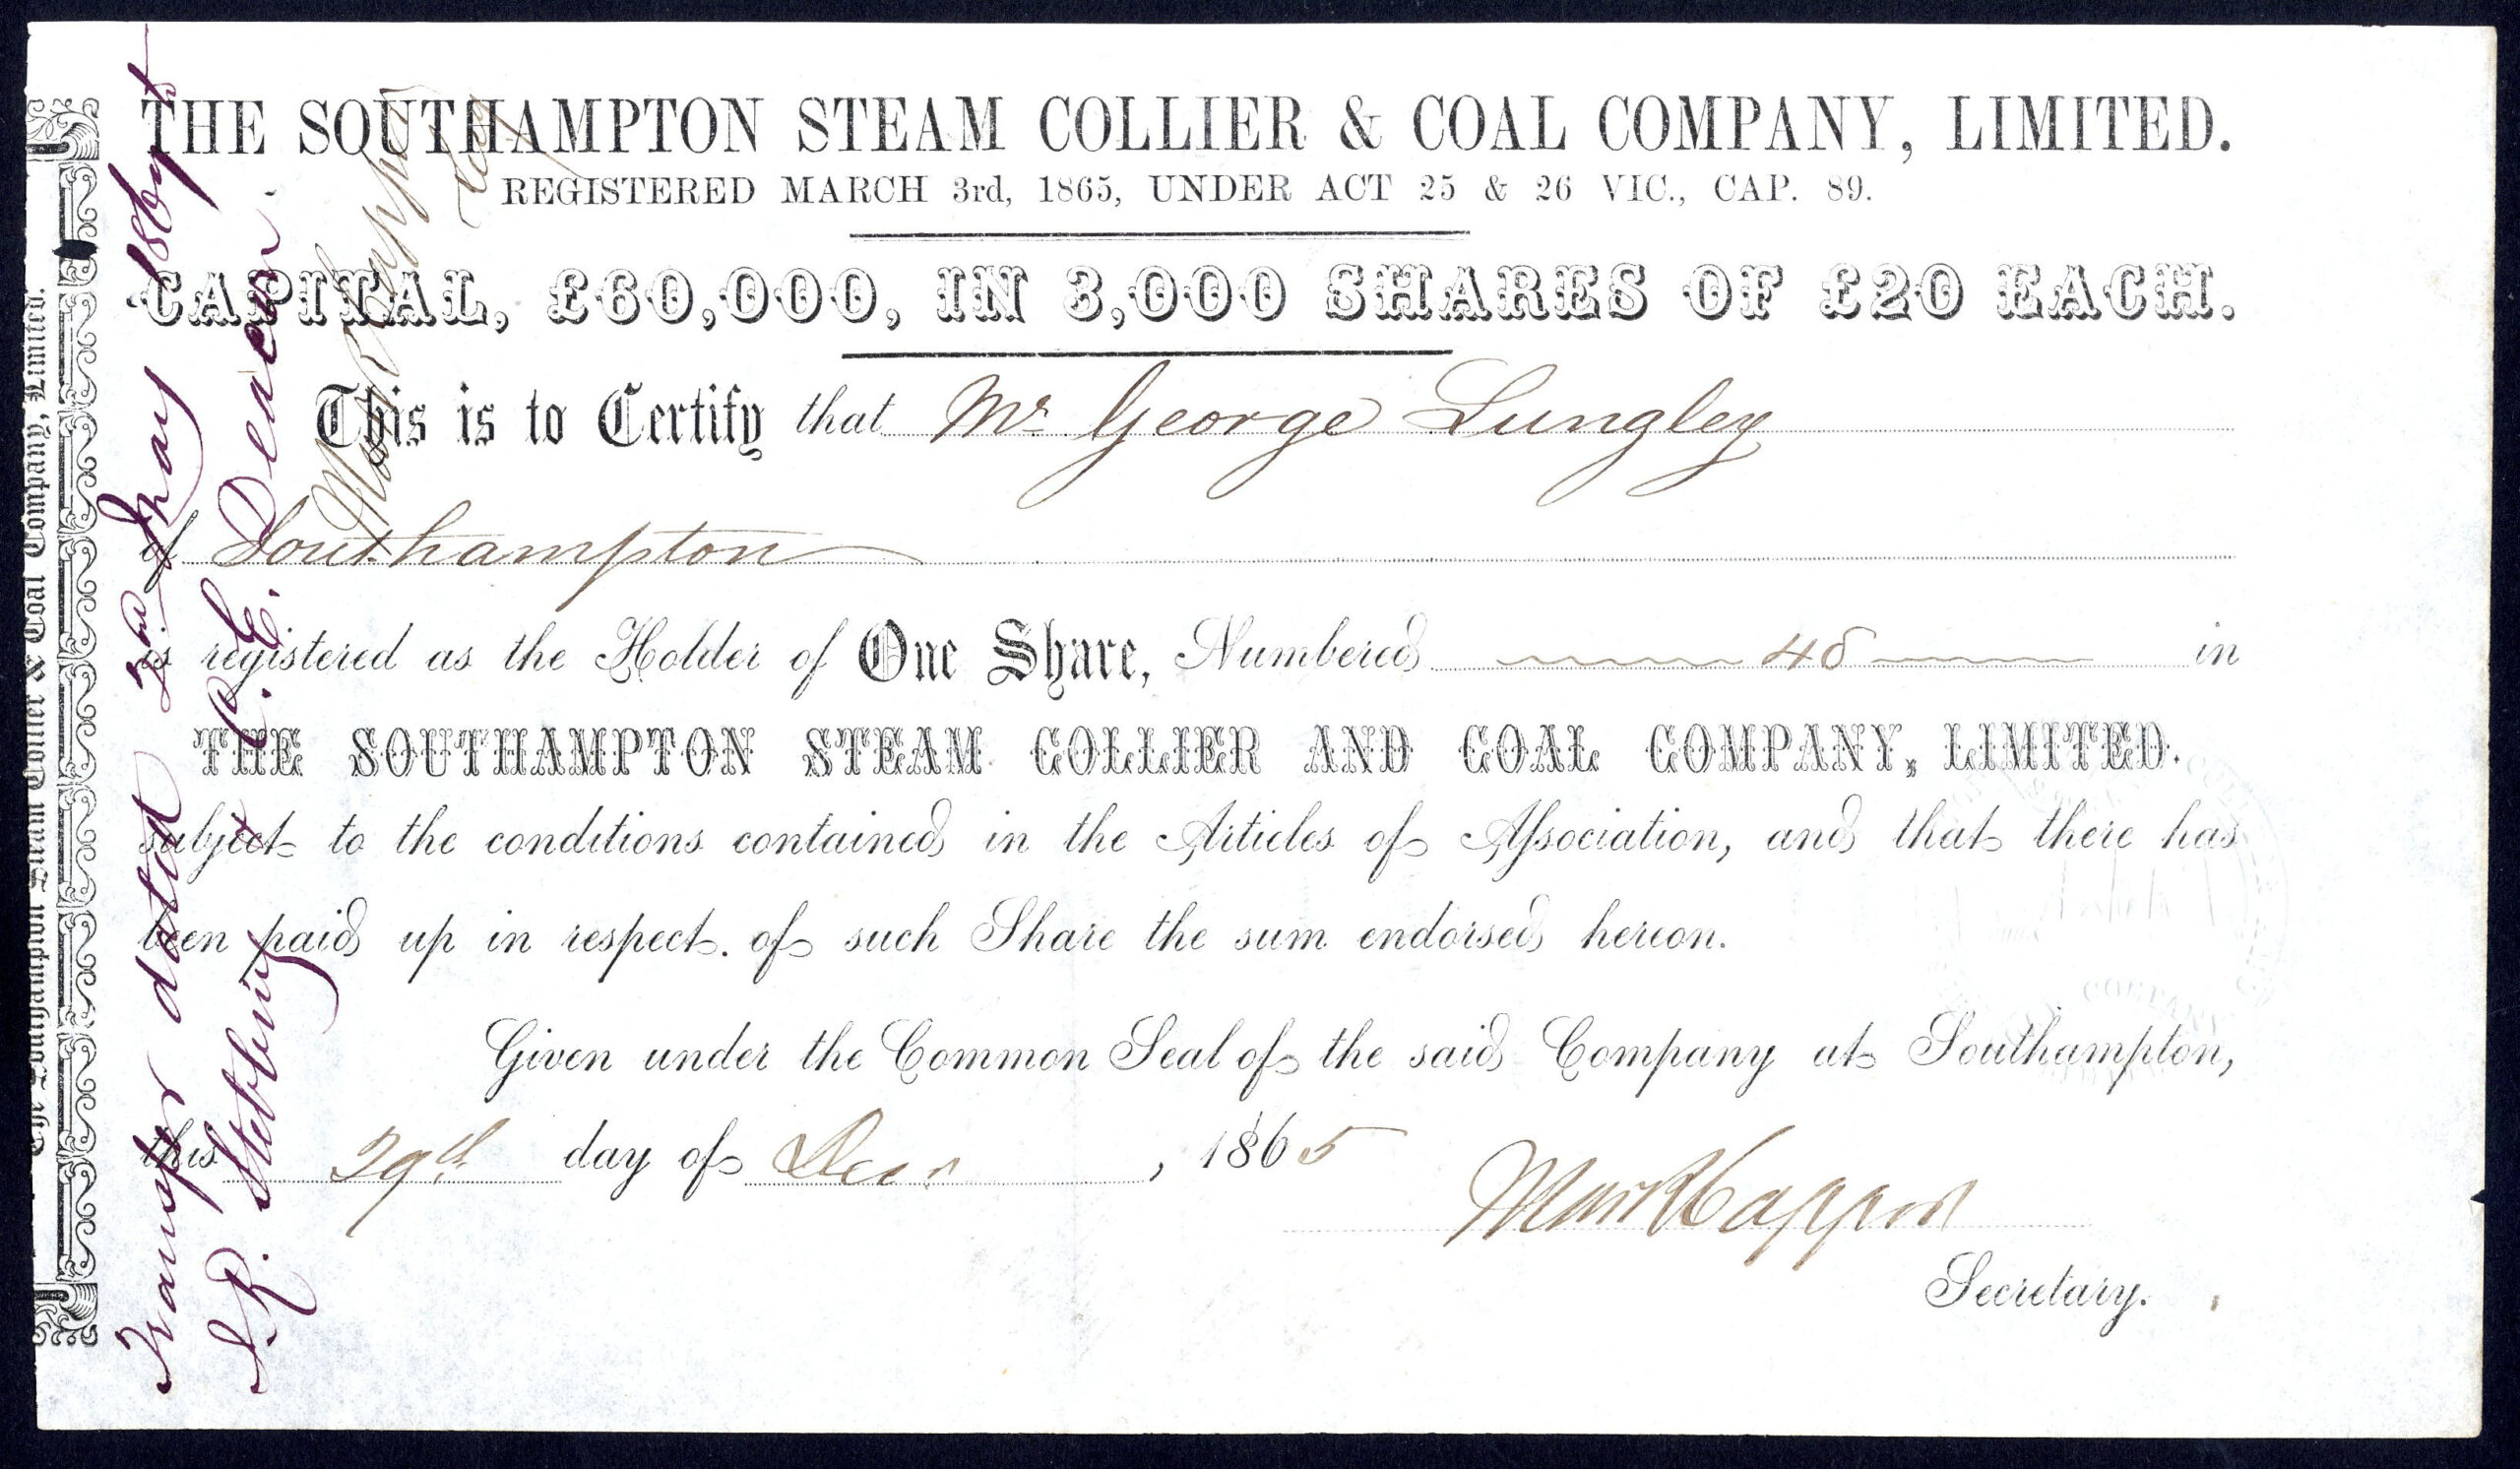 THE SOUTHAMPTON STEAM COLLIER & COAL COMPANY, LIMITED.
REGISTERED MARCH 3rd, 1865, UNDER ACT 25 & 26 VIC., CAP. 89.
CAPITAL, £60,000, IN 3,000 SHARES OF £20 EACH.
This is to Certify that Mr George Lungley
of Southampton
is registered as the Holder of One Share, Numbered 48 in
THE SOUTHAMPTON STEAM COLLIER AND COAL COMPANY, LIMITED.
subject to the conditions contained in the Articles of Association, and that there has
been paid up in respect of such Share the sum endorsed hereon.
Given under the Common Seal of the said Company at Southampton,
this 29th day of Decr, 1865
Secretary.
The Southampton Steam Collier & Coal Company, Limited.
Transfer dated 2nd May 1867 to
J. R. Stebbing & C. E. Deacon